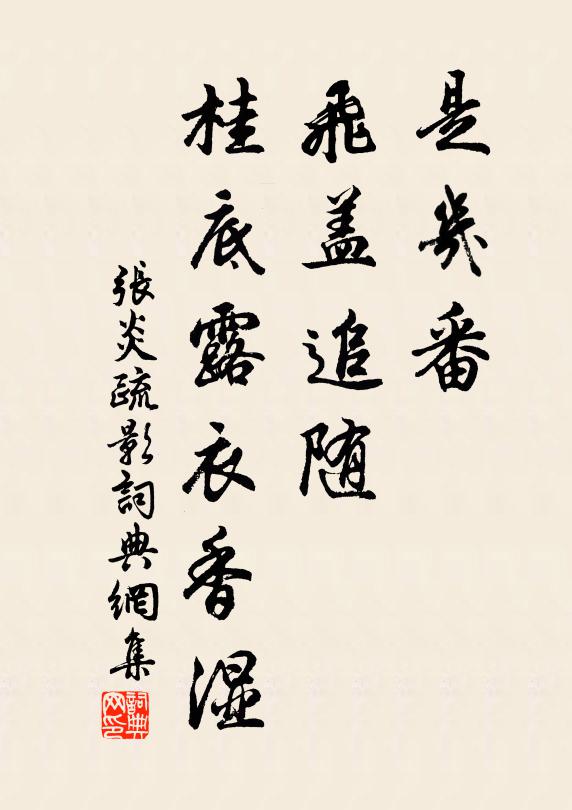 是幾番
飛盖追随
桂底露衣香湿
張炎疏影詞典網集
詞典网印